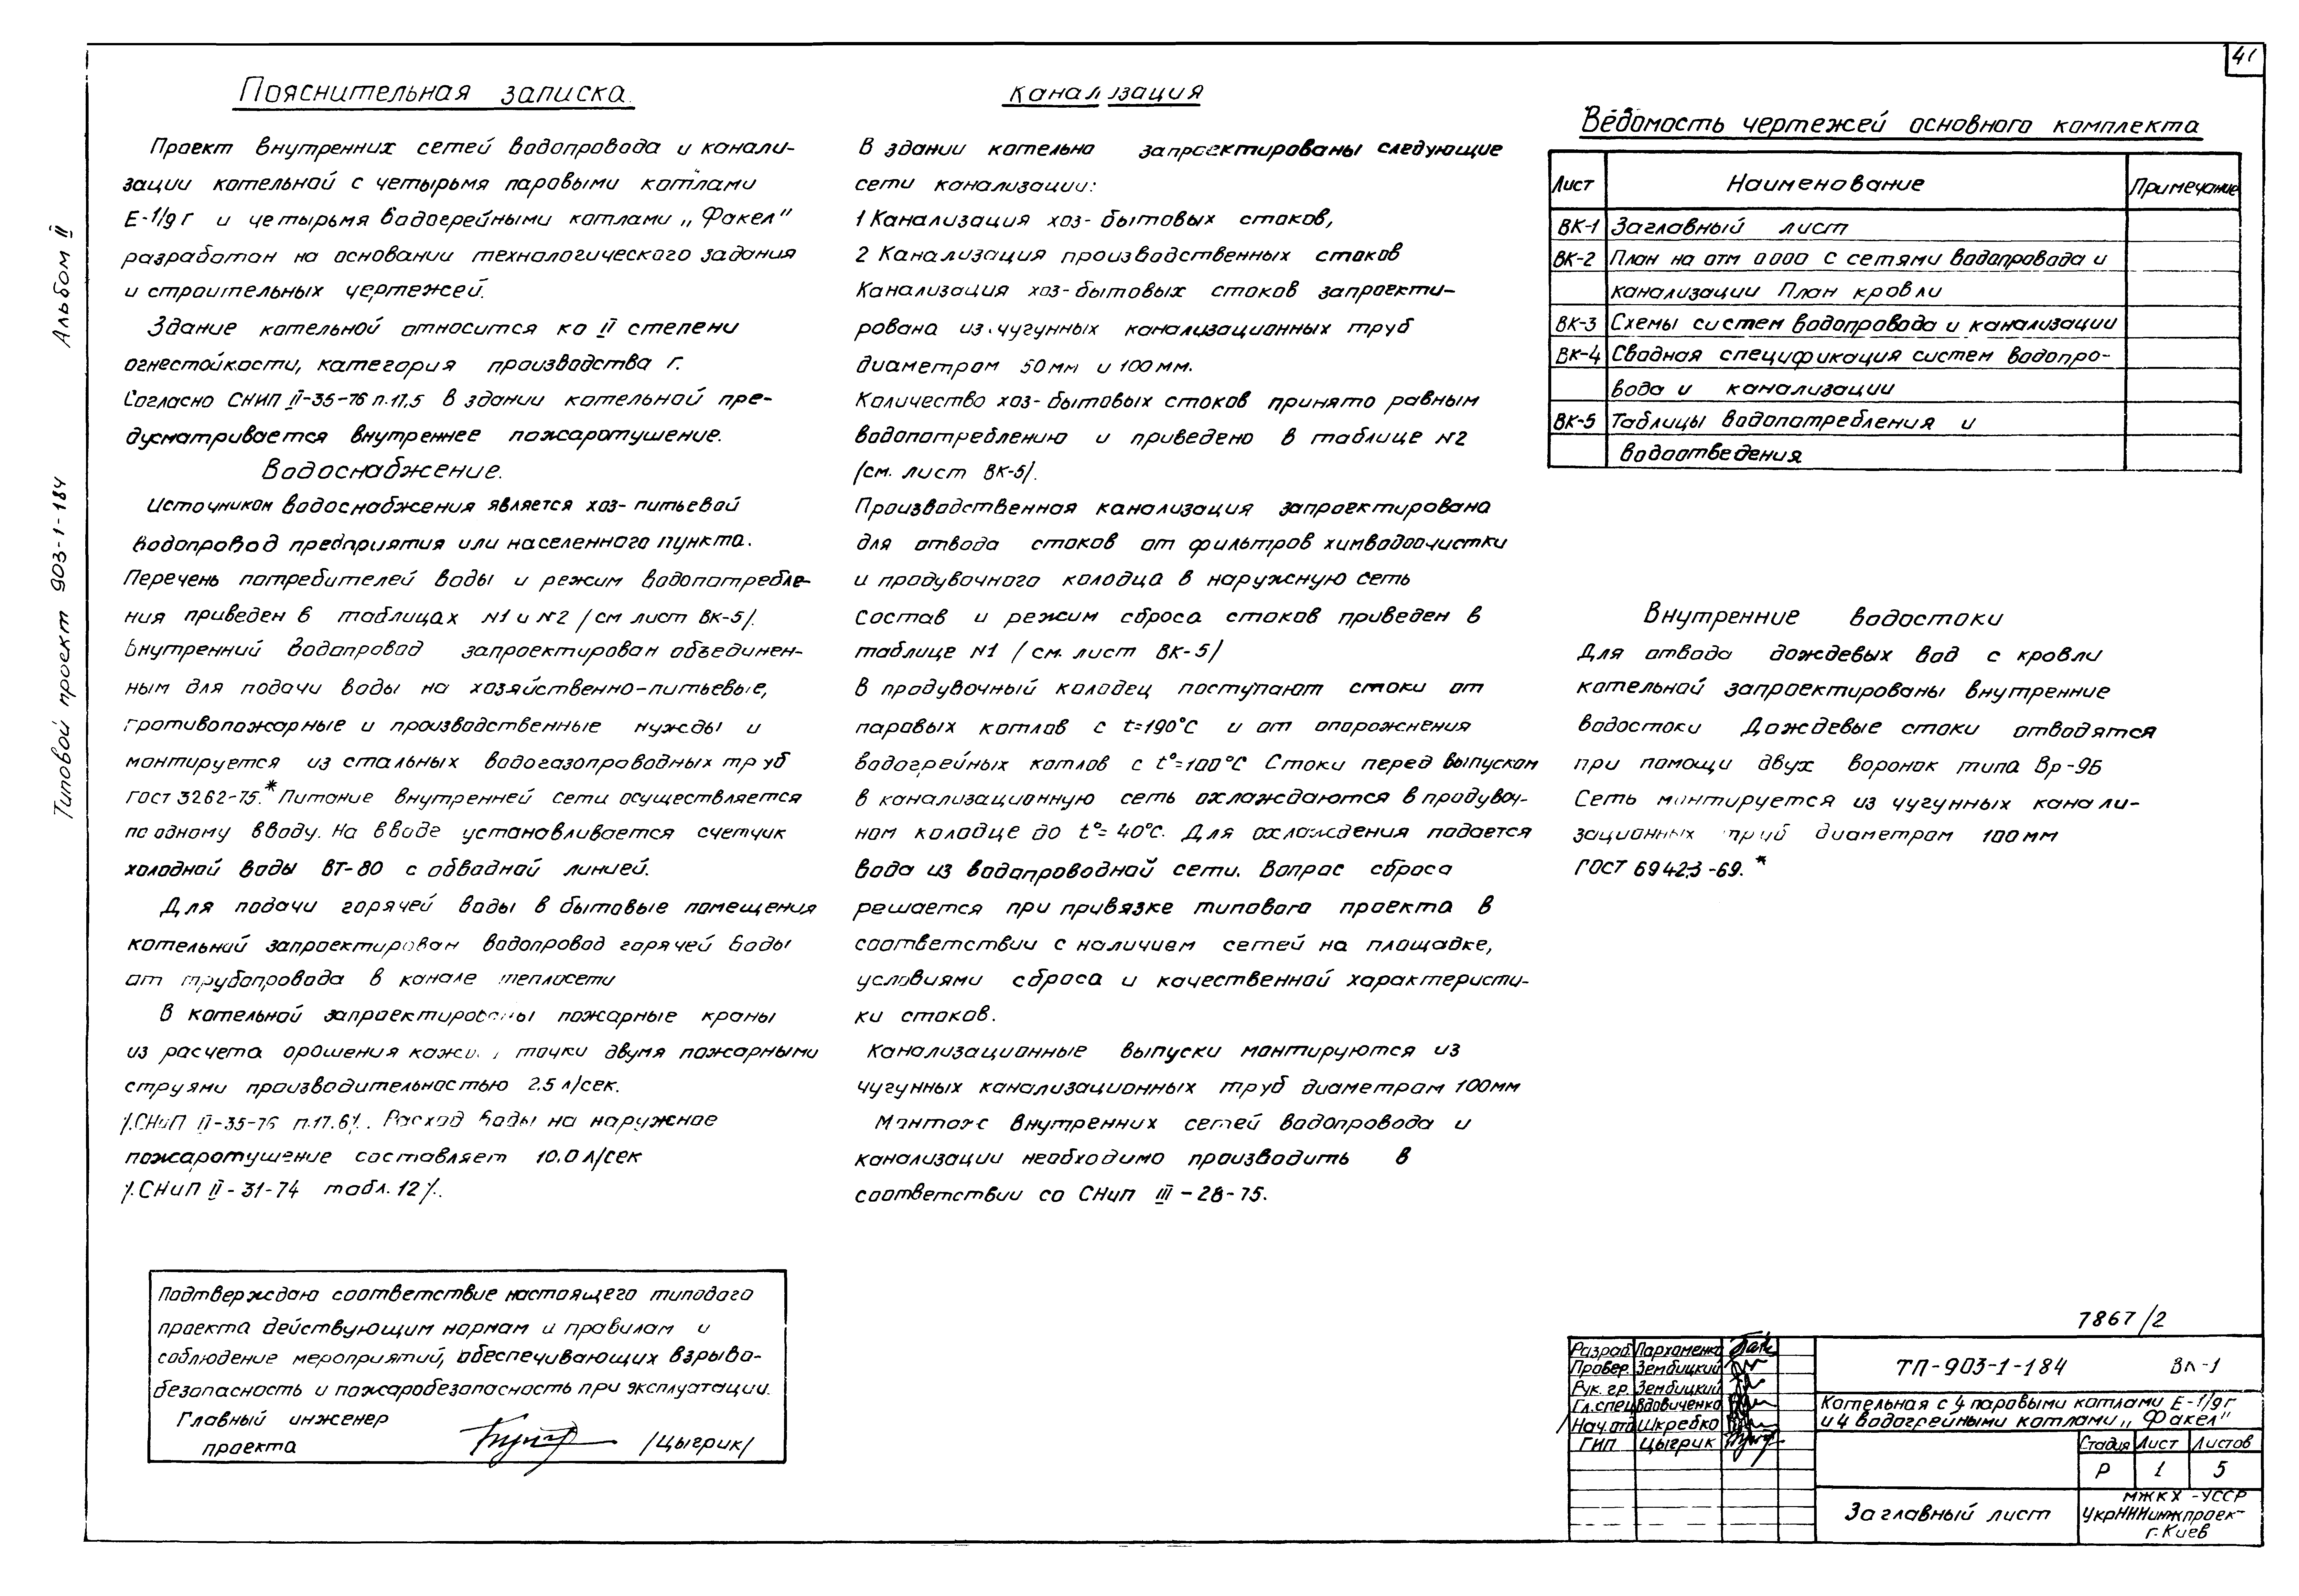 41
Альбом II
Типовой проект 903-1-184
Пояснительная записка.
Проект внутренних сетей водопровода и канали-
зации котельной с четырьмя паровыми котлами
Е-1/9г и четырьмя водогрейными котлами „Факел"
разработан на основании технологического задания
и строительных чертежей.
Здание котельной относится ко II степени
огнестойкости, категория производства г.
Согласно СНИП II-35-76 п.17.5 в здании котельной пре-
дусматривается внутреннее пожаротушение.
Водоснабжение.
Источником водоснабжения является хоз-питьевой
водопровод предприятия или населенного пункта.
Перечень потребителей воды и режим водопотребле-
ния приведен в таблицах №1 и №2 /см лист ВК-5/.
Внутренний водопровод запроектирован объединен-
ным для подачи воды на хозяйственно-питьевые,
противопожарные и производственные нужды и
монтируется из стальных водогазопроводных труб
ГОСТ 3262-75.* Питание внутренней сети осуществляется
по одному вводу. На вводе установливается счетчик
холодной воды ВТ-80 с обводной линией.
Для подачи горячей воды в бытовые помещения
котельной запроектирован водопровод горячей воды
от трубопровода в канале теплосети
В котельной запроектированы пожарные краны
из расчета орошения точки двумя пожарными
струями производительностью 2,5 л/сек.
/.СНиП II-35-76 п.17.6/.. Расход воды на наружное
пожаротушение составляет 10.0 л/сек
/.СНиП II-31-74 табл.12/..
Подтверждаю соответствие настоящего типового
проекта действующим нормам и правилам и
соблюдение мероприятий, обеспечивающих взрыво-
безопасность и пожаробезопасность при эксплуатации.
Главный инженер
проекта /Цыгрик/
Канализация
В здании котельно запроектированы следующие
сети канализации:
1 Канализация хоз-бытовых стоков,
2 Канализация производственных стоков
Канализация хоз-бытовых стоков запроекти-
рована из чугунных канализационных труб
диаметром 50мм и 100мм.
Количество хоз-бытовых стоков принято равным
водопотреблению и приведено в таблице №2
/см. лист ВК-5/.
Производственная канализация запроектирована
для отвода стоков от фильтров химводоочистки
и продувочного колодца в наружную сеть
Состав и режим сброса стоков приведен в
таблице №1 /см. лист ВК-5/
В продувочный колодец поступают стоки от
паровых котлов с t=190°С и от опорожнения
водогрейных котлов с t°=100°С Стоки перед выпуском
в канализационную сеть охлаждаются в продувоч-
ном колодце до t°=40°С. Для охлаждения подается
вода из водопроводной сети. Вопрос сброса
решается при привязке типового проекта в
соответствии с наличием сетей на площадке,
условиями сброса и качественной характеристи-
ки стоков.
Канализационные выпуски монтируются из
чугунных канализационных труб диаметром 100мм
Монтаж внутренних сетей водопровода и
канализации необходимо производить в
соответствии со СНиП III-28-75.
Ведомость чертежей основного комплекта
Лист Наименование Примечание
ВК-1 Заглавный лист
ВК-2 План на отм 0000 с сетями водопровода и
канализации План кровли
ВК-3 Схемы систем водопровода и канализации
ВК-4 Сводная спецификация систем водопро-
вода и канализации
ВК-5 Таблицы водопотребления и
водоотведения
Внутренние водостоки
Для отвода дождевых вод с кровли
котельной запроектированы внутренние
водостоки Дождевые стоки отводятся
при помощи двух воронок типа Вр-9Б
Сеть монтируется из чугунных канали-
зационных труб диаметром 100мм
ГОСТ 6942.3-69.*
7867/2
Разраб. Пархоменко
Провер. Зембицкий
Рук. гр. Зембицкий
Гл.спец Вдовиченко
Нач.отд Шкребко
ГИП Цыгрик
ТП-903-1-184 ВК-1
Котельная с 4 паровыми котлами Е-1/9г
и 4 водогрейными котлами „Факел"
Стадия Лист Листов
Р 1 5
Заглавный лист
МЖКХ -УССР
УкрНИИинжпроек-
г.Киев